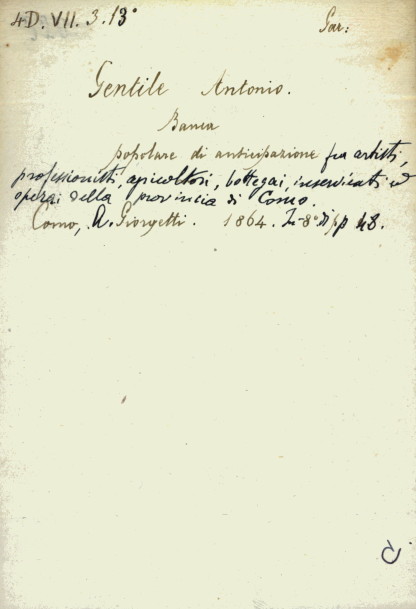 4D. VII. 3. 13°
Gar:
Gentile Antonio.
Banca
popolare di anticipazione fra artisti,
professionisti, agricoltori, bottegai, inservienti ed
operai della provincia di Como.
Como, A. Giorgetti. 1864. In-8° di pp 48.